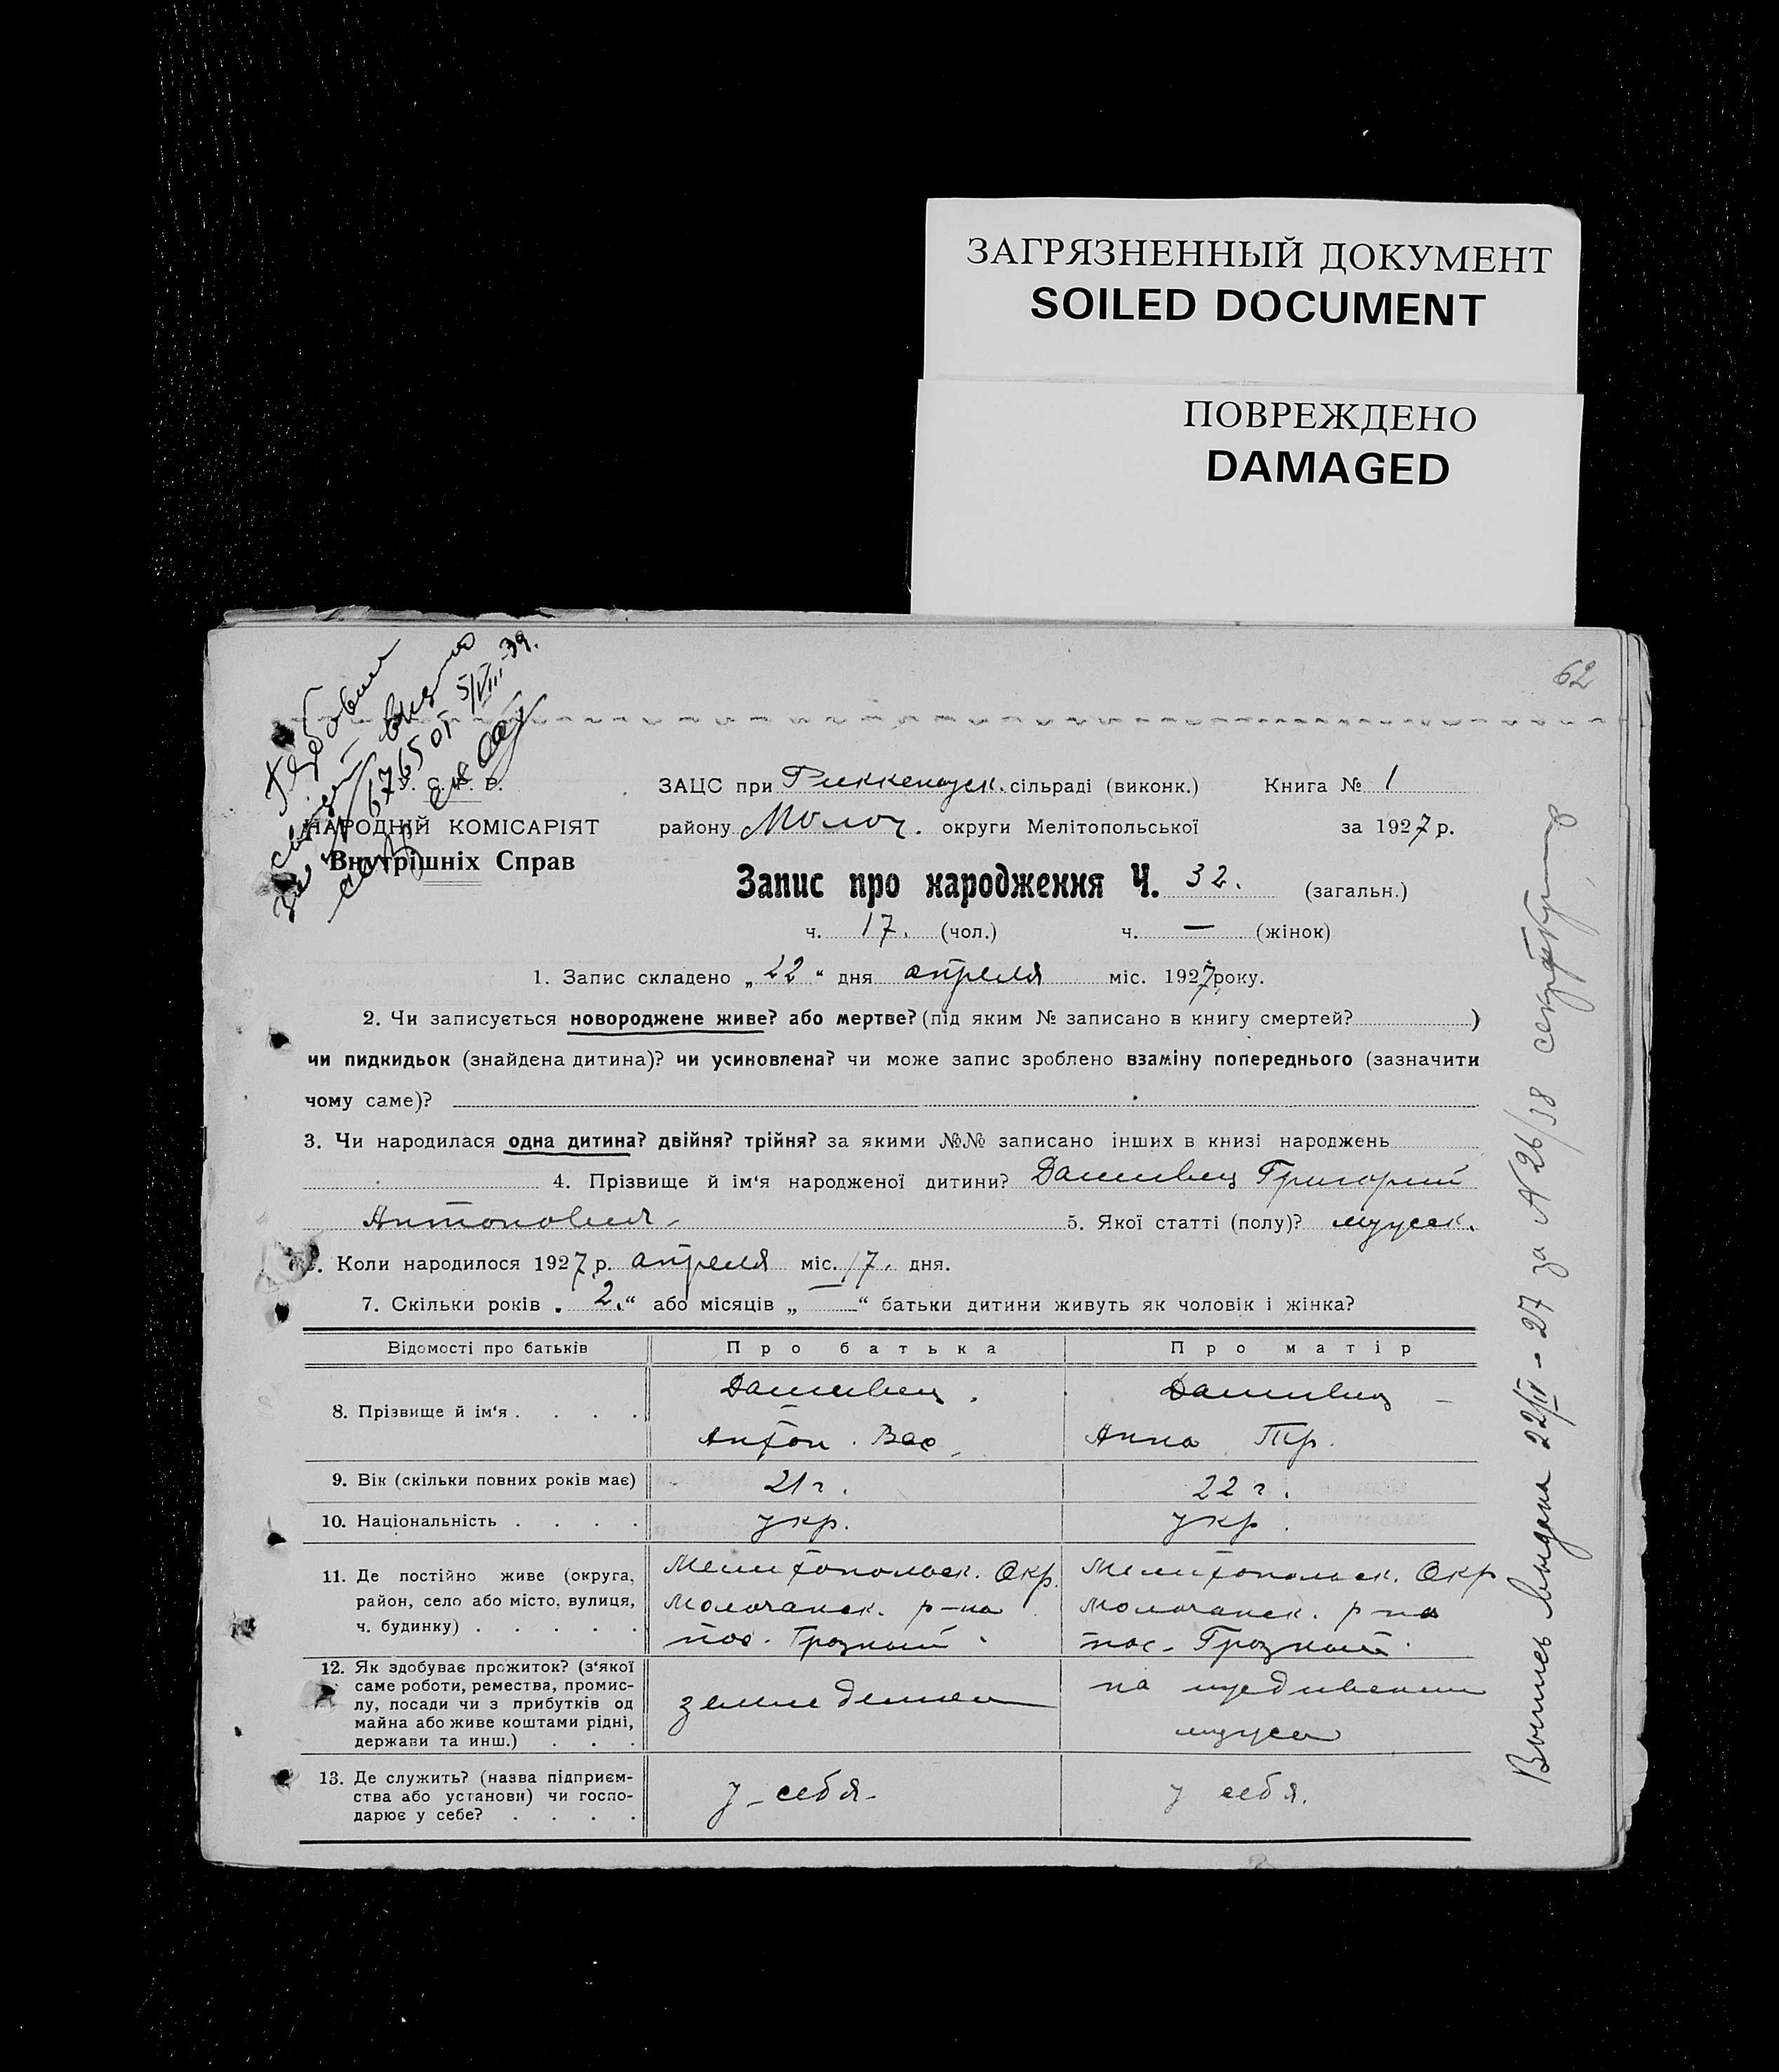 ЗАГРЯЗНЕННЫЙ ДОКУМЕНТ
SOILED DOCUMENT
ПОВРЕЖДЕНО
DAMAGED
62
Гербовый
выдано
за № 6765 от 5/VIII-39.
У. С. Р. Р.
НАРОДНІЙ КОМІСАРІЯТ
Внутрішніх Справ
ЗАЦС при сільраді (виконк.) Книга № 1
району Молоч. округи Мелітопольської за 1927 р.
Запис про народження Ч. 32. (загальн.)
ч. 17. (чол.) ч. — (жінок)
1. Запис складено „22“ дня апреля міс. 1927 року.
2. Чи записується новороджене живе? або мертве? (під яким № записано в книгу смертей? )
чи пидкидьок (знайдена дитина)? чи усиновлена? чи може запис зроблено взаміну попереднього (зазначити
чому саме)?
3. Чи народилася одна дитина? двійня? трійня? за якими №№ записано інших в книзі народжень
4. Прізвище й ім‘я народженої дитини? Данивец Григорий
Антонович 5. Якої статті (полу)? мужск.
6. Коли народилося 1927 р. апреля міс. 17. дня.
7. Скільки років „2.“ або місяців „—“ батьки дитини живуть як чоловік і жінка?
Відомості про батьків Про батька Про матір
8. Прізвище й ім‘я . . . . Данивец. Данивец
Антон. Вас. Анна Гр.
9. Вік (скільки повних років має) 21 г. 22 г.
10. Національність . . . . укр. укр.
11. Де постійно живе (округа, Мелитопольск. Окр. Мелитопольск. Окр
район, село або місто, вулиця, Молочанск. р-на Молочанск. р-на
ч. будинку) . . . . . пос. Грозный. пос. Грозный.
12. Як здобуває прожиток? (з‘якої
саме роботи, ремества, промис-
лу, посади чи з прибутків од земледелием на иждивении
майна або живе коштами рідні, мужа
держави та инш.) . . .
13. Де служить? (назва підприєм-
ства або установи) чи госпо- у себя у себя.
дарює у себе? . . . .
Выпись выдана 22/IV - 27 за № 26/38 секретарь